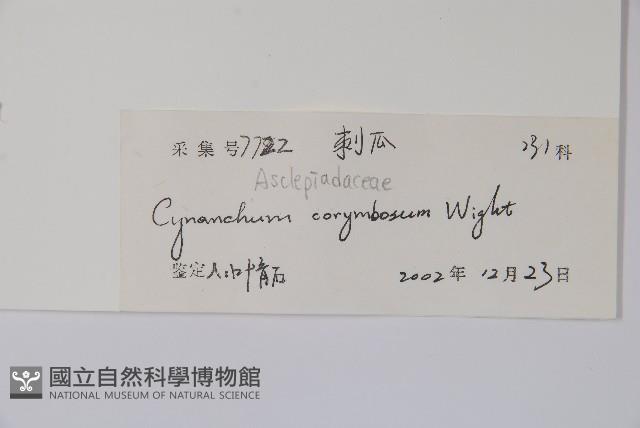 采集号 7722 刺瓜 231 科
Asclepiadaceae
Cynanchum corymbosum Wight
鉴定人: 叶育石 2002年 12月 23日
國立自然科學博物館
NATIONAL MUSEUM OF NATURAL SCIENCE